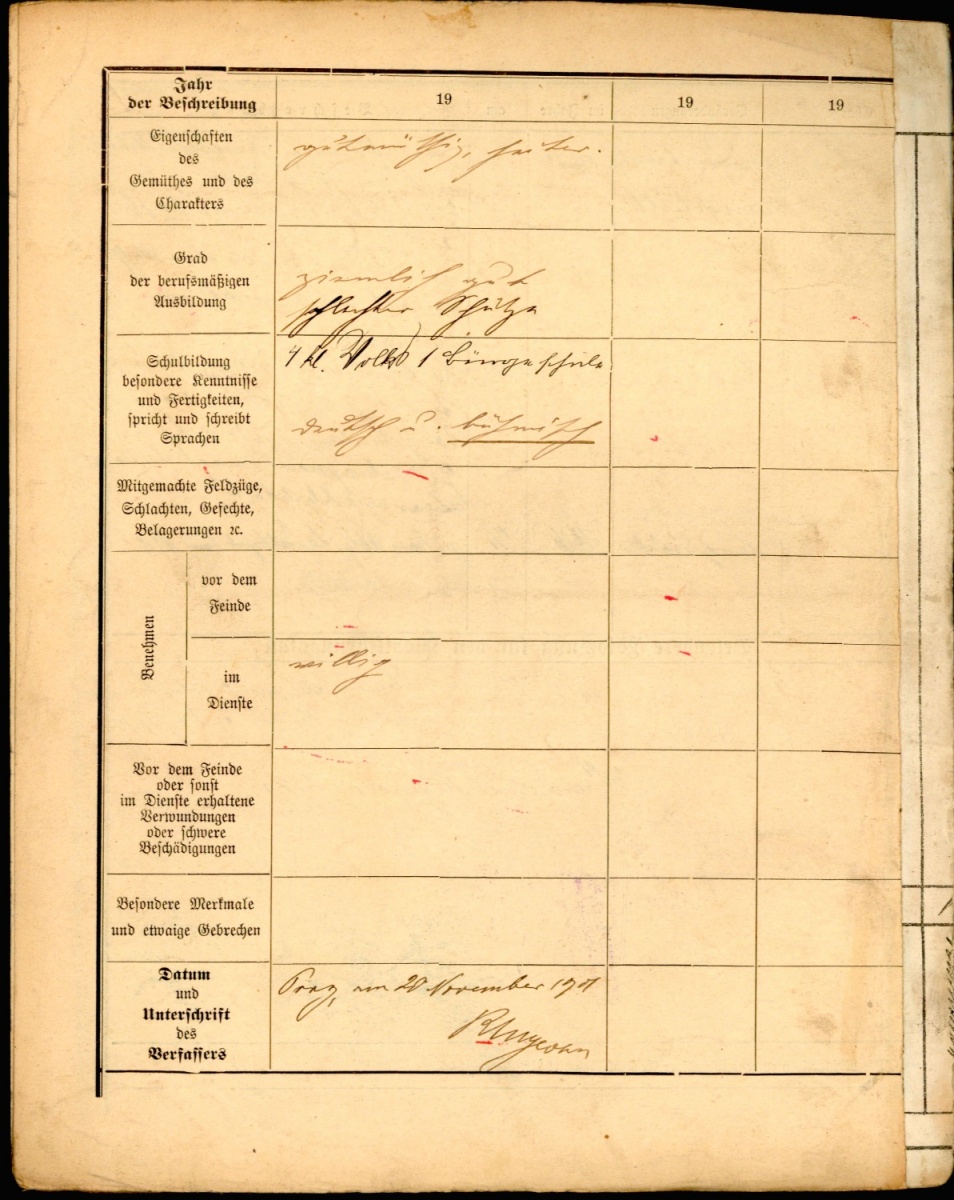 Jahr
der Beschreibung
19
19
19
Eigenschaften
des
Gemüthes und des
Charakters
gutmüthig, heiter.
Grad
der berufsmäßigen
Ausbildung
ziemlich gut
schlechter Schütze
Schulbildung
besondere Kenntnisse
und Fertigkeiten,
spricht und schreibt
Sprachen
4 kl. Volks 1 Bürgerschule
deutsch u. böhmisch
Mitgemachte Feldzüge,
Schlachten, Gefechte,
Belagerungen ꝛc.
Benehmen
vor dem
Feinde
im
Dienste
willig
Vor dem Feinde
oder sonst
im Dienste erhaltene
Verwundungen
oder schwere
Beschädigungen
Besondere Merkmale
und etwaige Gebrechen
Datum
und
Unterschrift
des
Verfassers
Prag, am 20 November